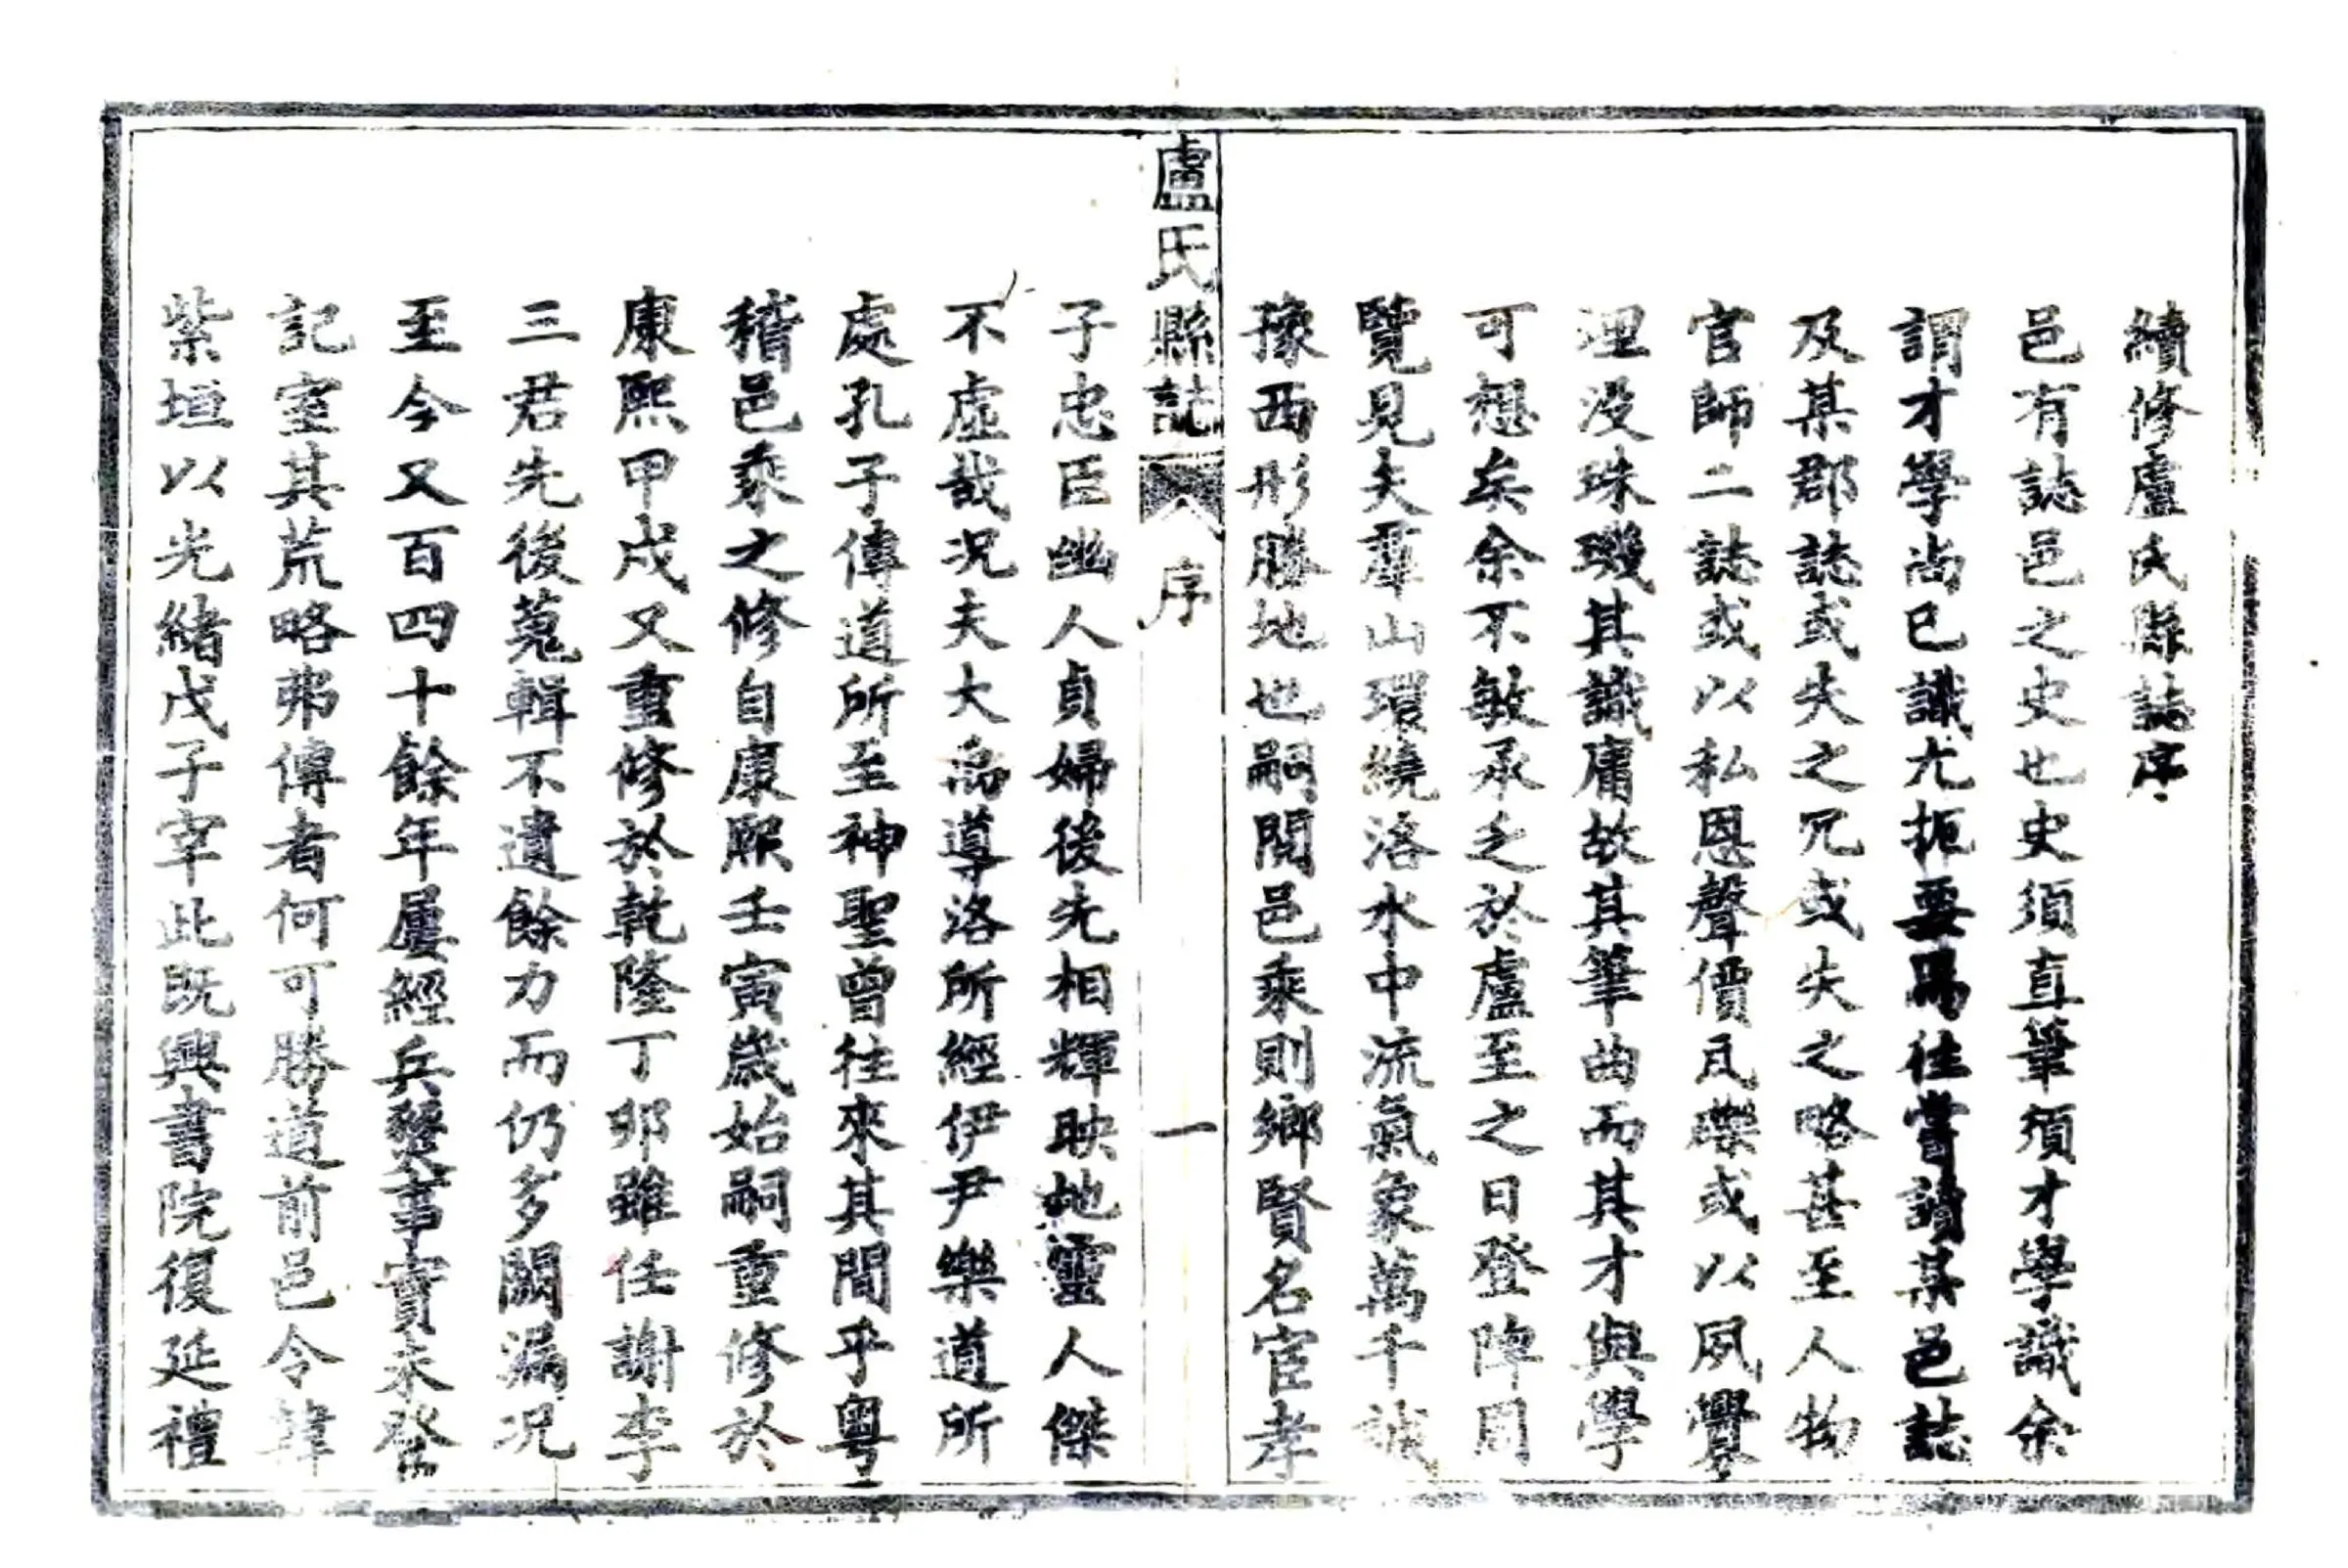 續修盧氏縣誌序
邑有誌邑之史也史須直筆須才學識余
謂才學尚已識尤扼要焉往嘗讀某邑誌
及某郡誌或失之冗或失之略甚至人物
官師二誌或以私恩聲價瓦礫或以夙釁
湮没珠璣其識庸故其筆曲而其才與學
可想矣余不敏承乏於盧至之日登陴周
覽見夫羣山環繞洛水中流氣象萬千誠
豫西形勝地也嗣閱邑乘則鄉賢名宦孝
盧氏縣誌 序 一
子忠臣幽人貞婦後先相輝映地靈人傑
不虛哉况夫大禹導洛所經伊尹樂道所
處孔子傳道所至神聖曾往來其間乎粤
稽邑乘之修自康熙壬寅歲始嗣重修於
康熙甲戌又重修於乾隆丁卯雖任謝李
三君先後蒐輯不遺餘力而仍多闕漏况
至今又百四十餘年屢經兵燹事實未登
記室其荒略弗傳者何可勝道前邑令韓
紫垣以光緒戊子宰此既興書院復延禮